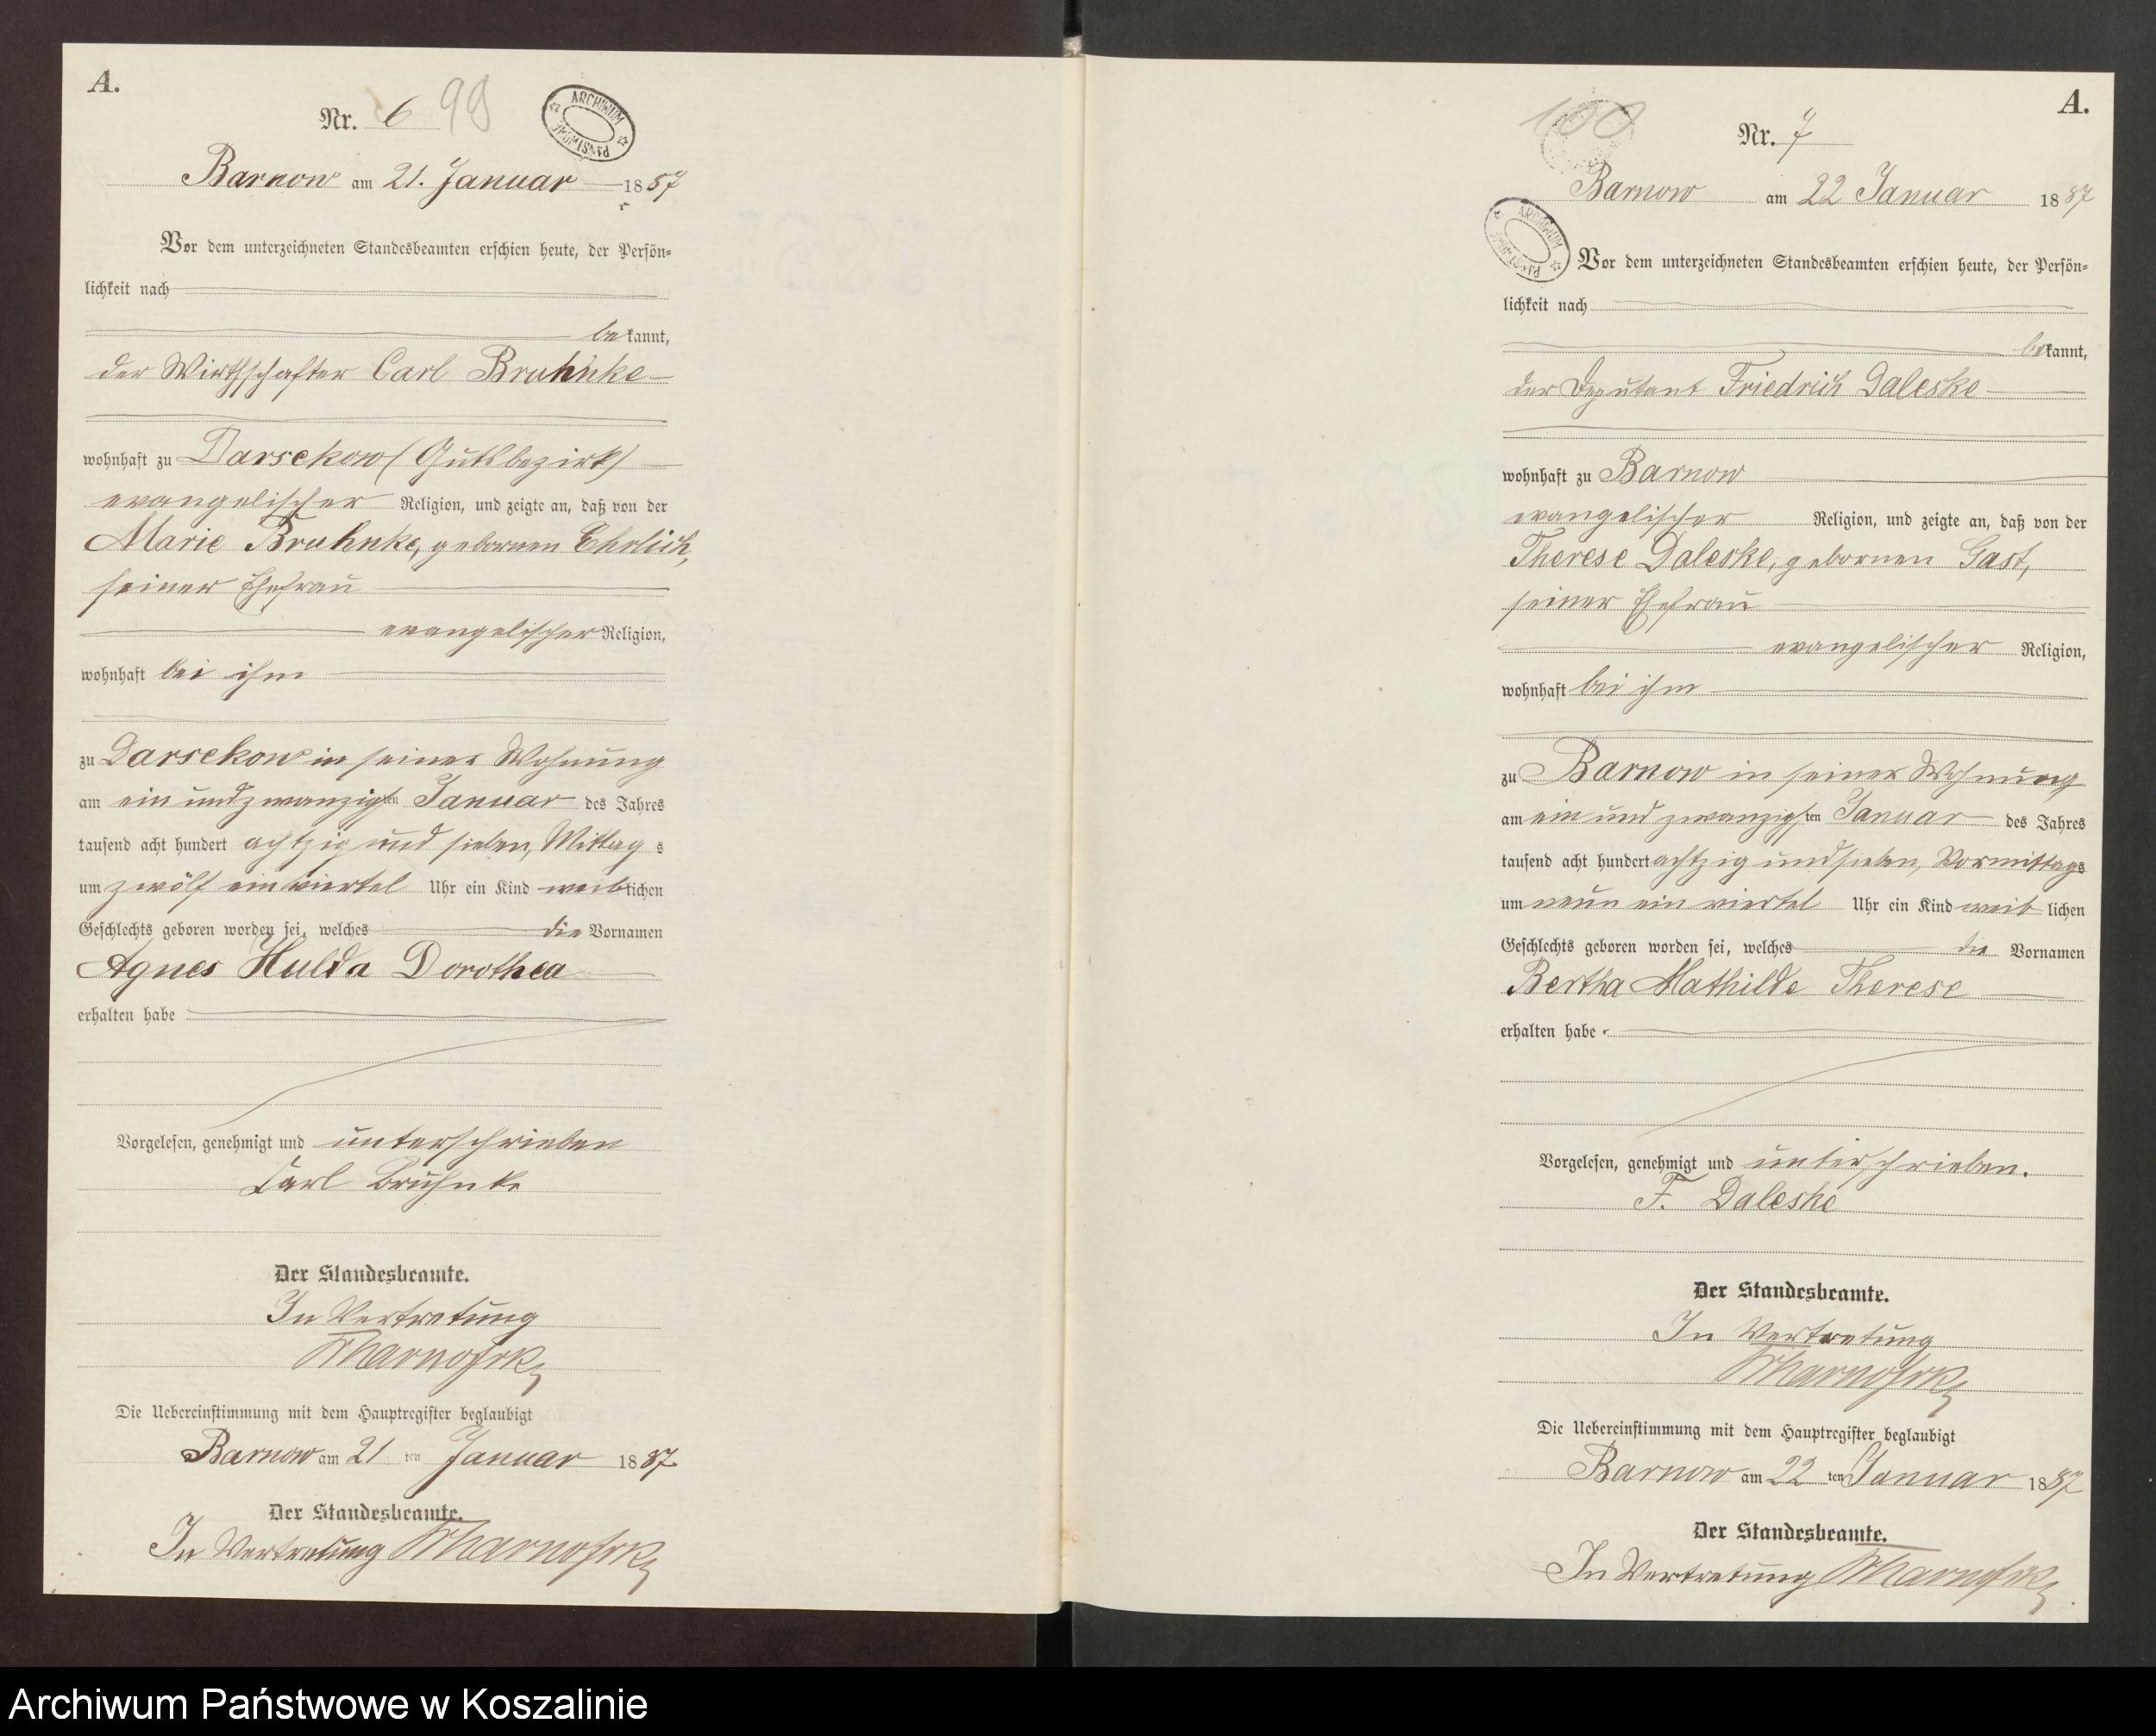 A.
Nr. 6 99
ARCHIWUM PAŃSTWOWE
Barnow am 21. Januar 1887
Vor dem unterzeichneten Standesbeamten erschien heute, der Persön-
lichkeit nach
bekannt,
der Wirthschafter Carl Bruhnke
wohnhaft zu Darsekow (Gutsbezirk)
evangelischer Religion, und zeigte an, daß von der
Marie Bruhnke, gebornen Ehrlich,
seiner Ehefrau
evangelischer Religion,
wohnhaft bei ihm
zu Darsekow in seiner Wohnung
am ein und zwanzigsten Januar des Jahres
tausend acht hundert achtzig und sieben, Mittags
um zwölf ein viertel Uhr ein Kind weiblichen
Geschlechts geboren worden sei, welches die Vornamen
Agnes Hulda Dorothea
erhalten habe
Vorgelesen, genehmigt und unterschrieben
Carl Bruhnke
Der Standesbeamte.
In Vertretung
Die Uebereinstimmung mit dem Hauptregister beglaubigt
Barnow am 21 ten Januar 1887.
Der Standesbeamte.
In Vertretung
A.
100
Nr. 7
Barnow am 22 Januar 1887
ARCHIWUM PAŃSTWOWE
Vor dem unterzeichneten Standesbeamten erschien heute, der Persön-
lichkeit nach
bekannt,
der Deputant Friedrich Daleske
wohnhaft zu Barnow
evangelischer Religion, und zeigte an, daß von der
Therese Daleske, gebornen Gast,
seiner Ehefrau
evangelischer Religion,
wohnhaft bei ihm
zu Barnow in seiner Wohnung
am ein und zwanzigsten Januar des Jahres
tausend acht hundert achtzig und sieben, Vormittags
um neun ein viertel Uhr ein Kind weiblichen
Geschlechts geboren worden sei, welches die Vornamen
Bertha Mathilde Therese
erhalten habe
Vorgelesen, genehmigt und unterschrieben.
F. Daleske
Der Standesbeamte.
In Vertretung
Die Uebereinstimmung mit dem Hauptregister beglaubigt
Barnow am 22 ten Januar 1887
Der Standesbeamte.
In Vertretung
Archiwum Państwowe w Koszalinie